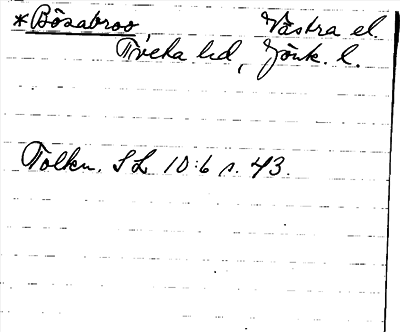 *Bösabroo Västra el.
Tveta hd, Jönk. l.
Tolkn. SL 10:6 s. 43.